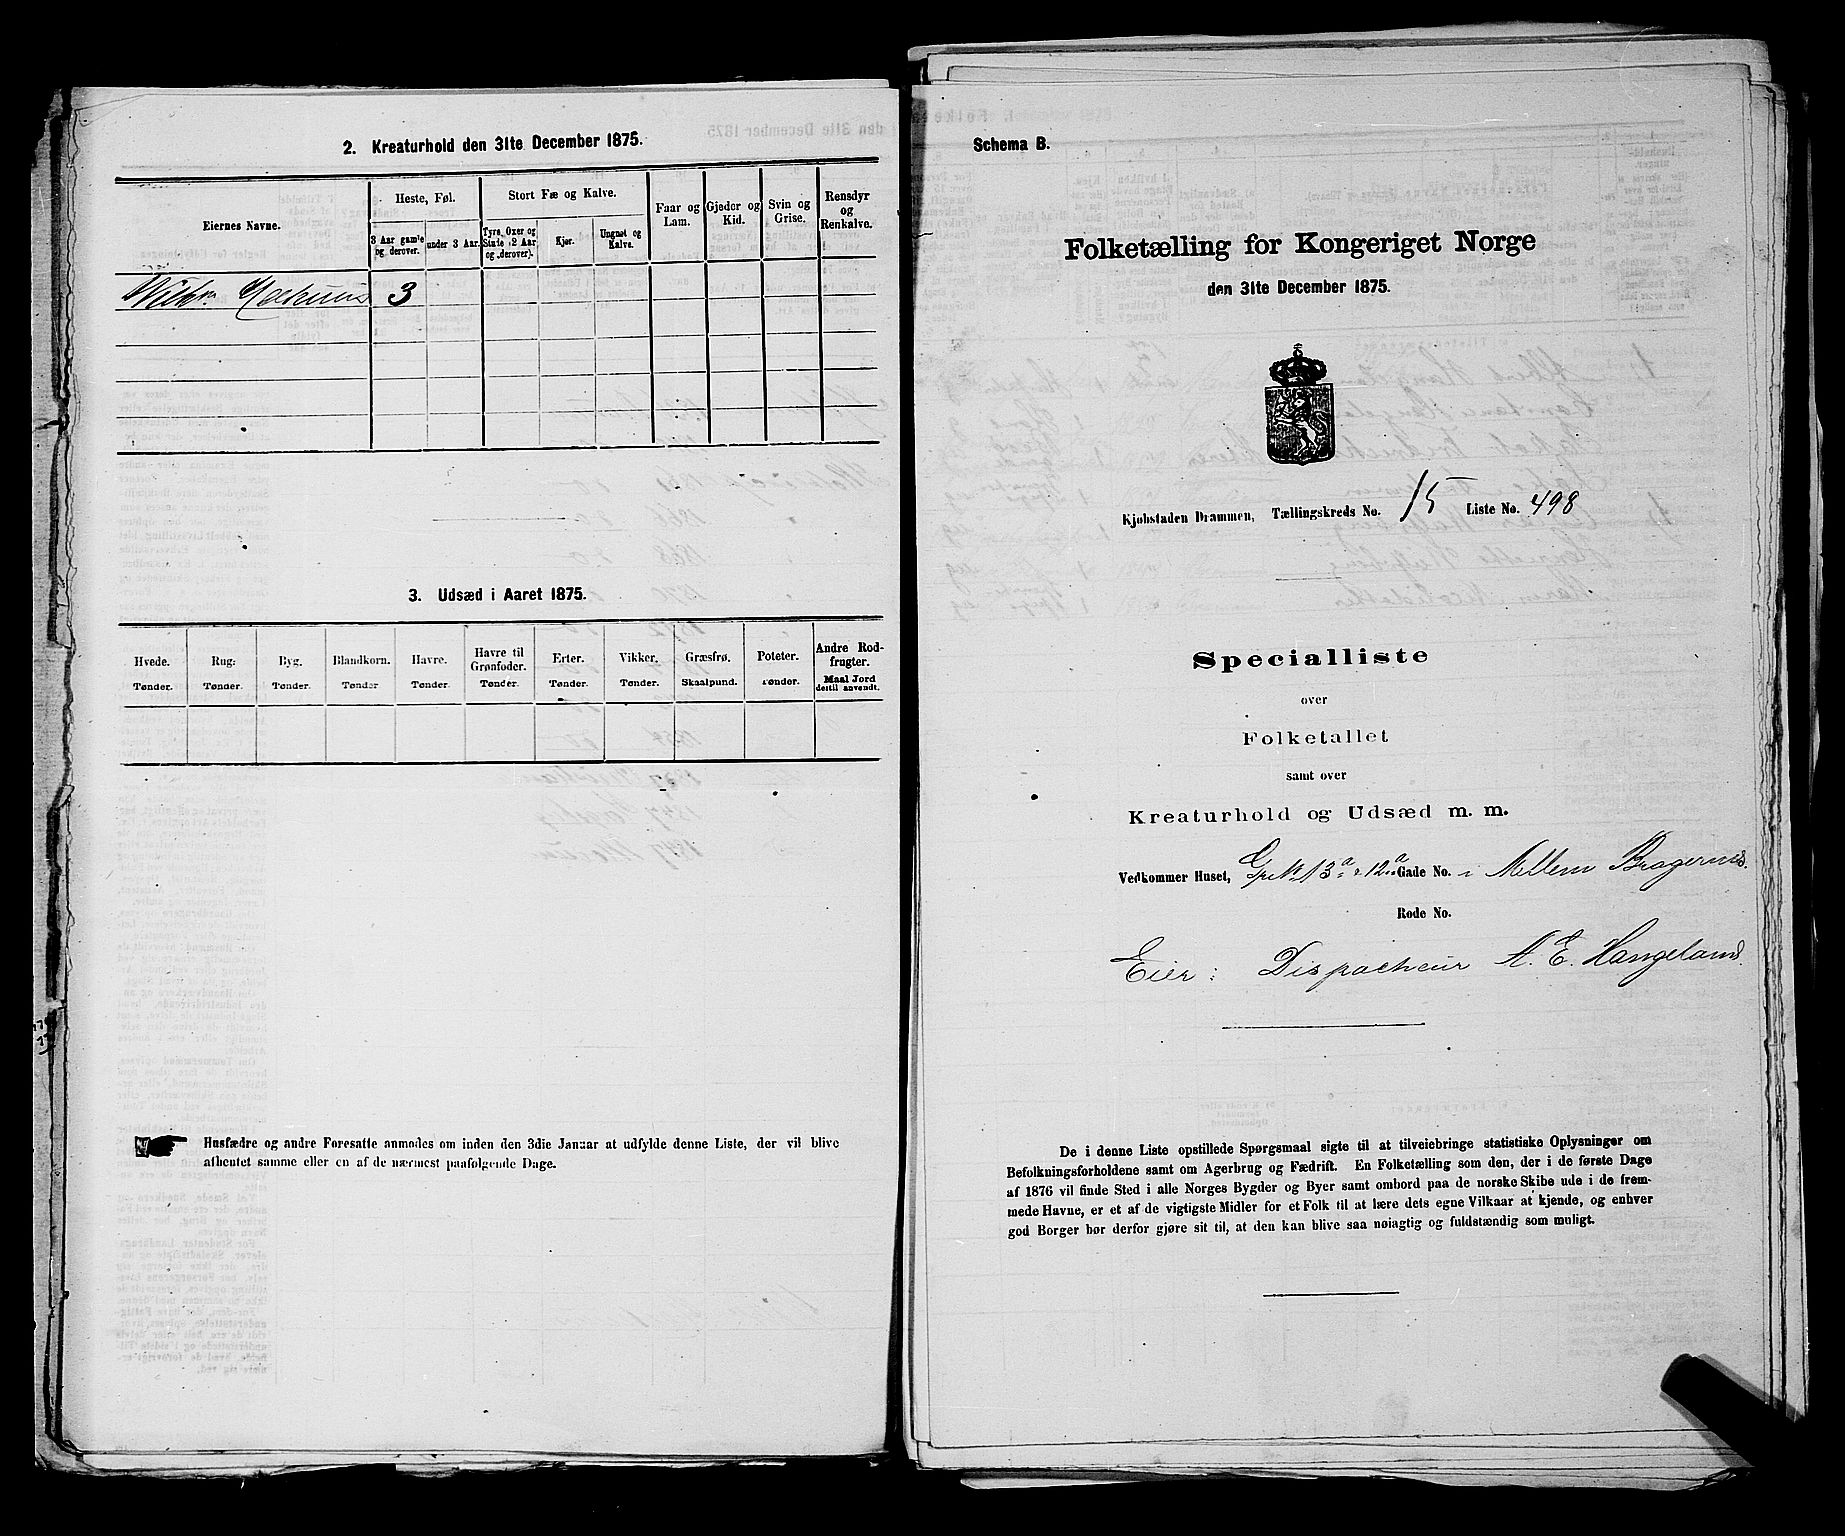 2. Kreaturhold den 31te December 1875.
Eiernes Navne.
Heste, Føl.
3 Aar gamle og derover.
under 3 Aar.
Stort Fæ og Kalve.
Tyre, Oxer og Stude (2 Aar og derover).
Kjør.
Ungnøt og Kalve.
Faar og Lam.
Gjeder og Kid.
Svin og Grise.
Rensdyr og Renkalve.
3
3. Udsæd i Aaret 1875.
Hvede. Tønder.
Rug: Tønder.
Byg. Tønder.
Blandkorn. Tønder
Havre. Tønder.
Havre til Grønfoder. Tønder.
Erter. Tønder.
Vikker. Tønder.
Græsfrø. Skaalpund.
Poteter. Tønder.
Andre Rodfrugter. Maal Jord dertil anvendt.
Husfædre og andre Foresatte anmodes om inden den 3die Januar at udfylde denne Liste, der vil blive
afhentet samme eller en af de nærmest paafølgende Dage.
Schema B.
Folketælling for Kongeriget Norge
den 31te December 1875.
Kjøbstaden Drammen, Tællingskreds No. 15 Liste No. 498
Specialliste
over
Folketallet
samt over
Kreaturhold og Udsæd m. m.
Vedkommer Huset, 13a 12a Gade No. i Mellem Bragernes.
Rode No.
Eier: Dispacheur A. E. Hangeland.
De i denne Liste opstillede Spørgsmaal sigte til at tilveiebringe statistiske Oplysninger om
Befolkningsforholdene samt om Agerbrug og Fædrift. En Folketælling som den, der i de første Dage
af 1876 vil finde Sted i alle Norges Bygder og Byer samt ombord paa de norske Skibe ude i de frem-
mede Havne, er et af de vigtigste Midler for et Folk til at lære dets egne Vilkaar at kjende, og enhver
god Borger bør derfor gjøre sit til, at den kan blive saa nøiagtig og fuldstændig som muligt.